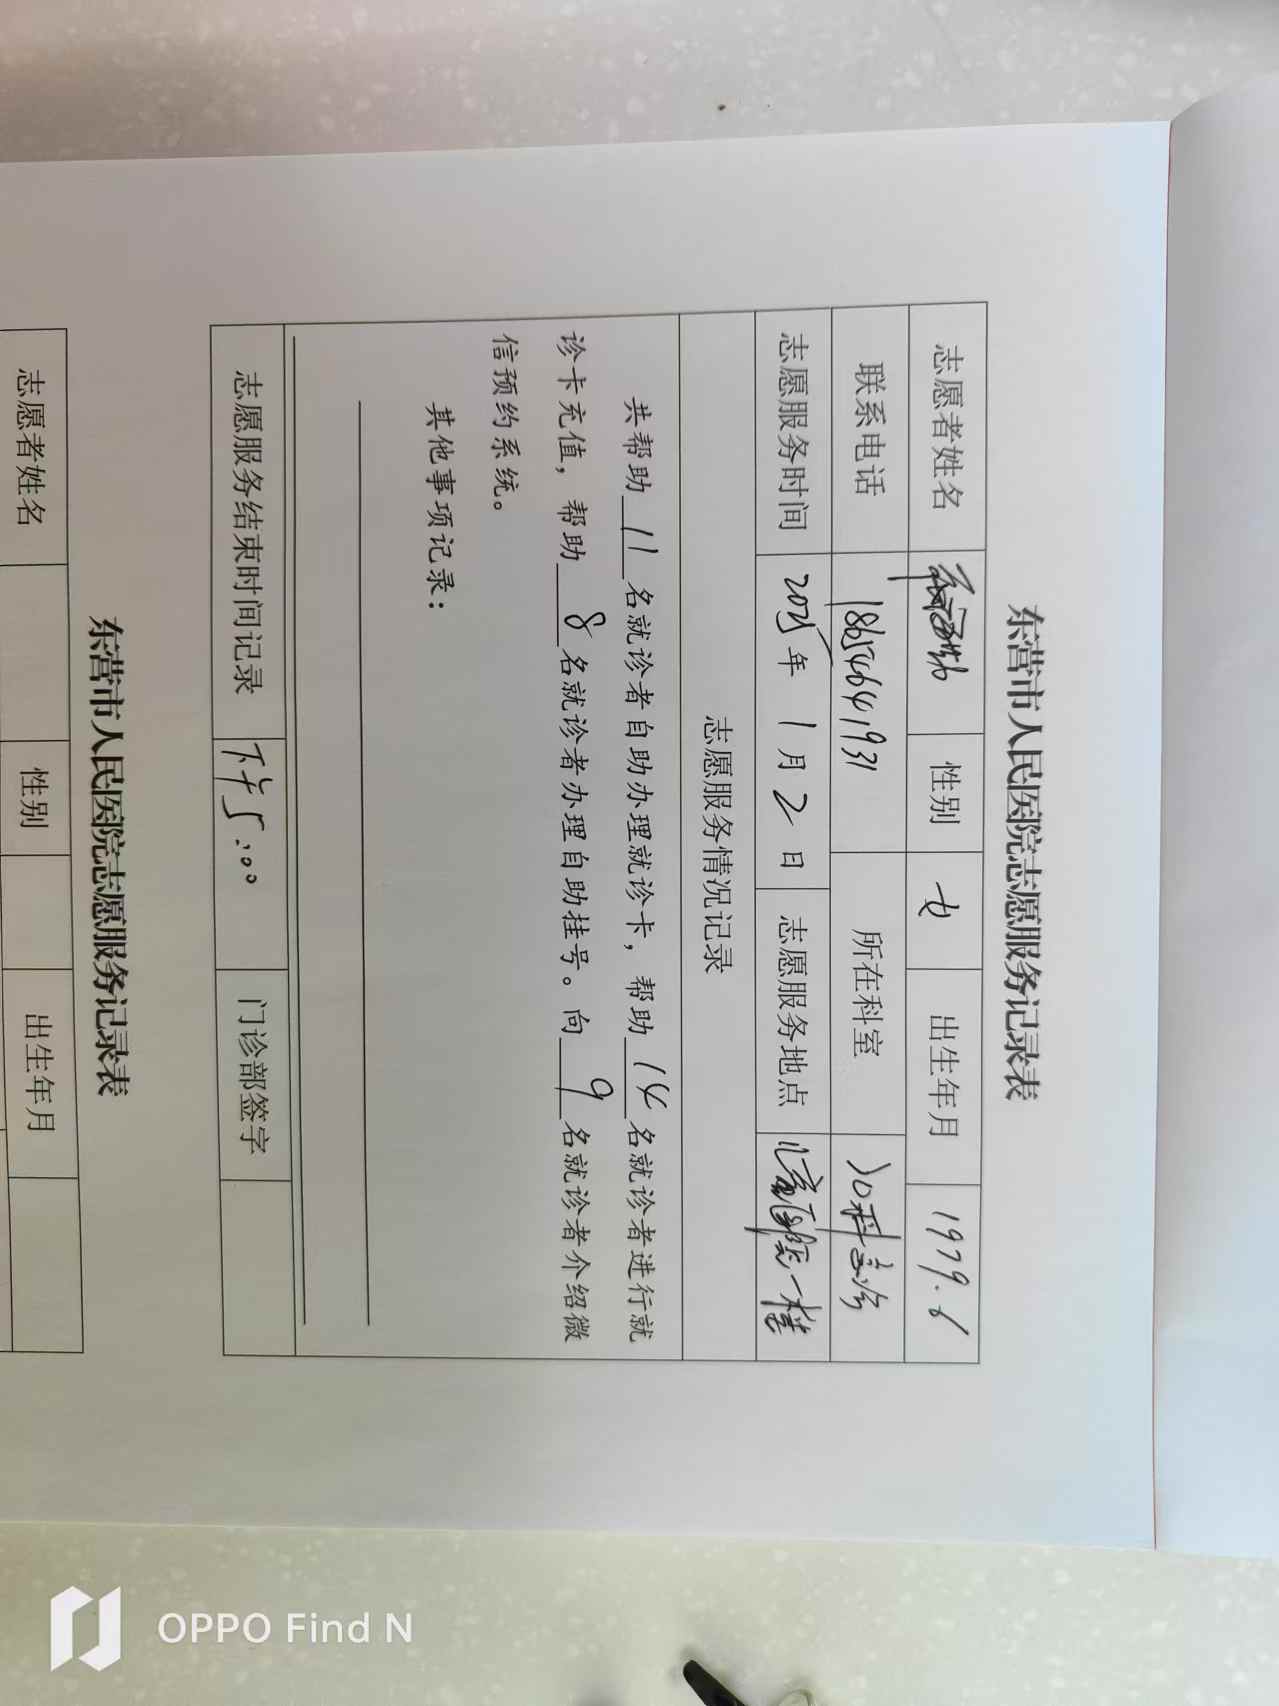 东营市人民医院志愿服务记录表
志愿者姓名 性别 女 出生年月 1979.6
联系电话 18654641931 所在科室
志愿服务时间 2025年 1月 2日 志愿服务地点
志愿服务情况记录
共帮助 11 名就诊者自助办理就诊卡，帮助 14 名就诊者进行就
诊卡充值，帮助 8 名就诊者办理自助挂号。向 9 名就诊者介绍微
信预约系统。
其他事项记录：
志愿服务结束时间记录 下午5:00 门诊部签字
东营市人民医院志愿服务记录表
志愿者姓名 性别 出生年月
OPPO Find N